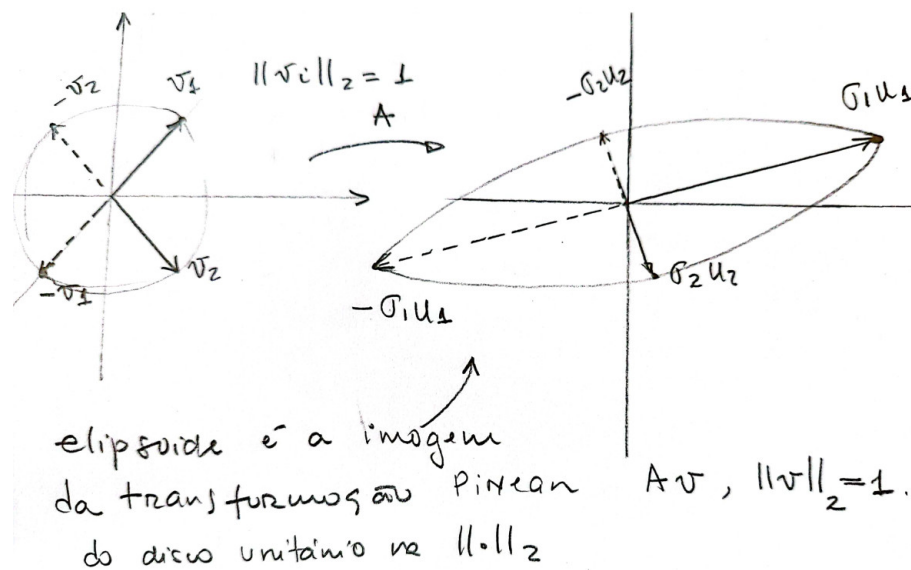 -v₂
v₁
||vi||₂ = 1
A
v₂
-v₁
-σ₂u₂
σ₁u₁
σ₂u₂
-σ₁u₁
elipsoide é a imagem
da transformação linear Av, ||v||₂=1.
do disco unitário na ||•||₂